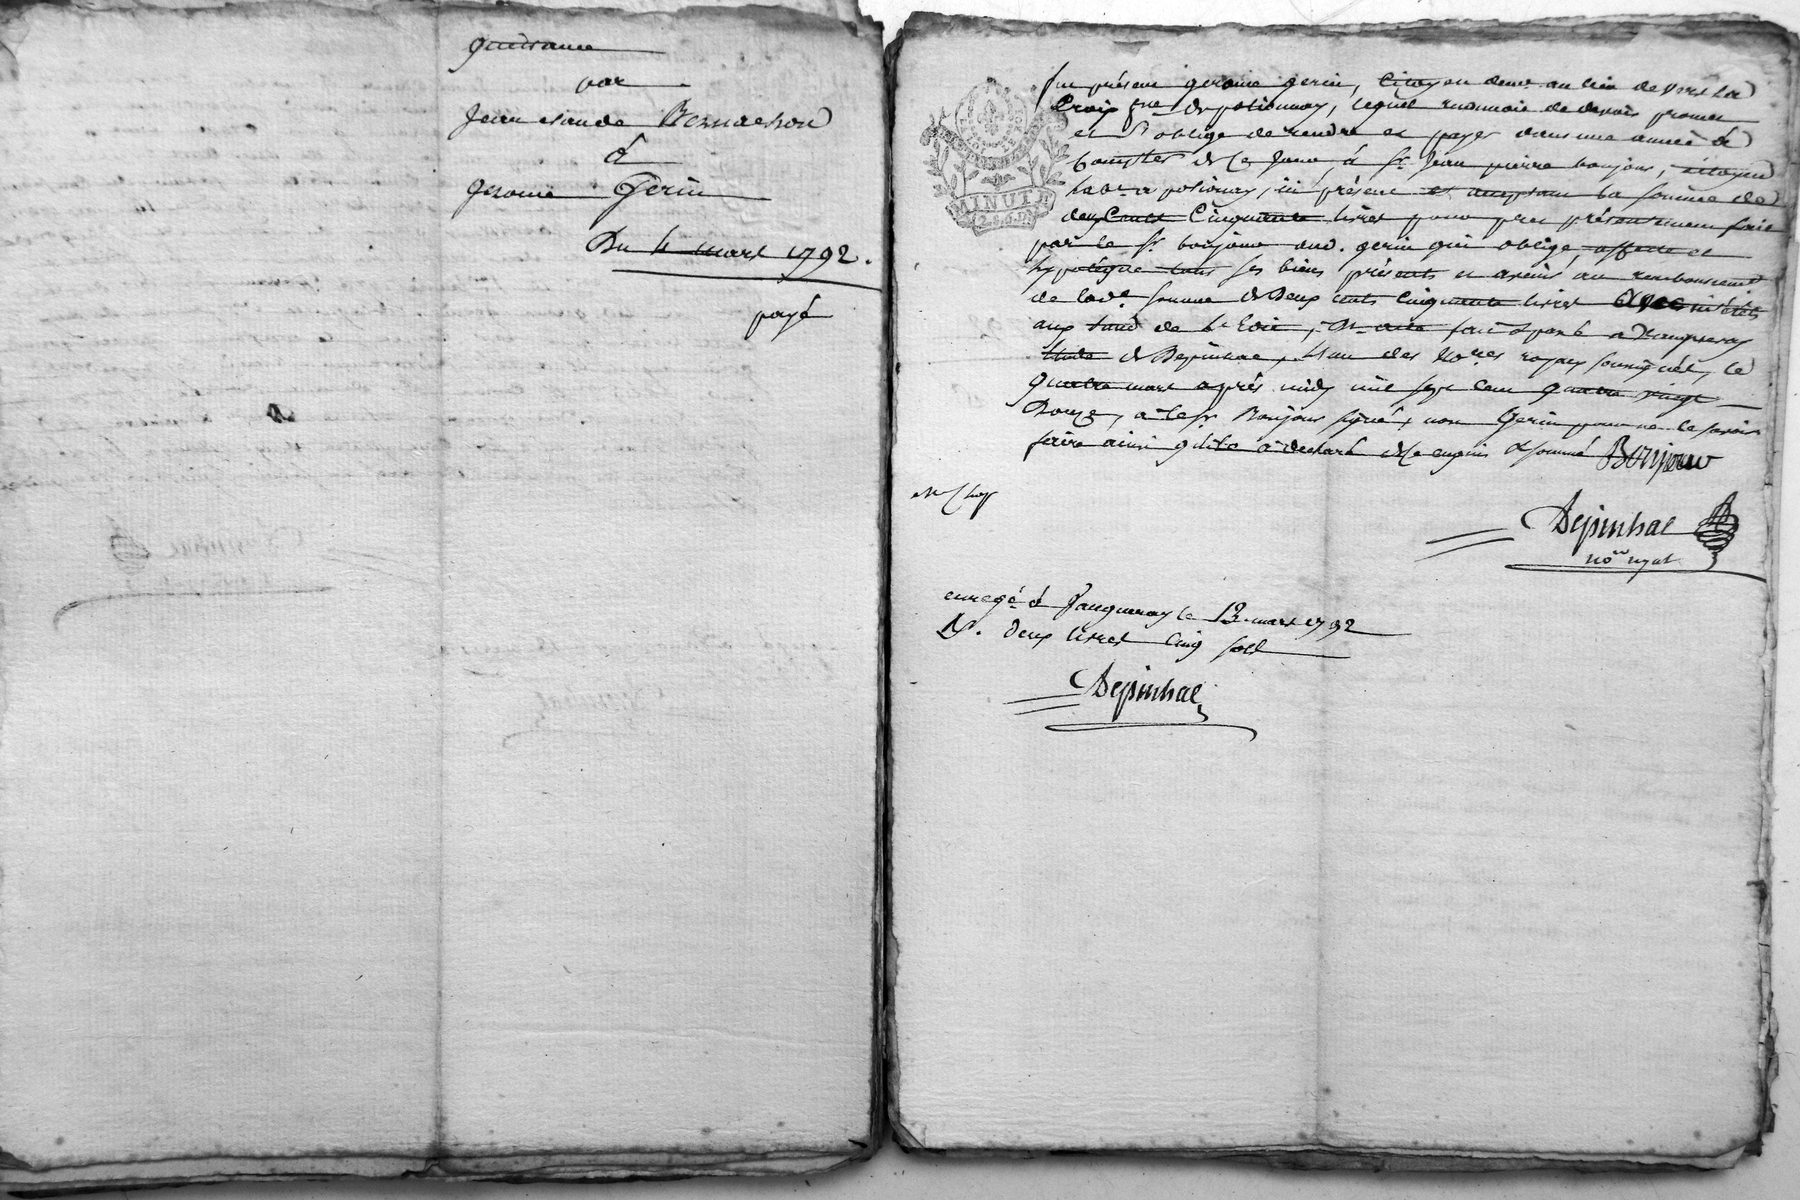 quittance
par
Jean claude Bernachon
à
Jerome Gerin
Du 4 mars 1792.
payé
fut présent gerome gerin, citoyen demt. au lieu de vers la
Croix psse. de polionnay, lequel reconnoit de devoir promet
et s'oblige de rendre et payer dans une année à
compter de ce jour, à sr. Jean pierre bonjour, citoyen
habt. a polionay, ici présent et acceptant la somme de
deux cents cinquante livres pour pret présentement fait
par le sr. bonjour aud. gerin qui oblige, affecte et
hypotéque tous ses biens présents et avenir au remboursement
de lade. somme de Deux cents cinquante livres avec intérêts
aux taux de la loi, Dt acte fait et passé a Vaugneray
étude de Depinhac, l'un des Nores royaux soussignés, le
quatre mars après midy mil sept cent quatre vingt
Douze, a le sr. Bonjour signé, non Gerin pour ne le savoir
faire ainsi qu'il a déclaré de ce enquis et sommé Bonjour
MINUTE
Depinhac
nore royal
enregé. à Vaugneray le 13 mars 1792
R. deux livres cinq sols
Depinhac